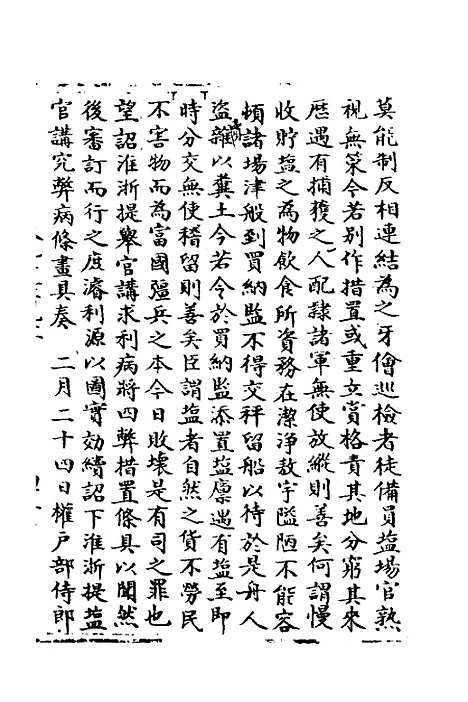 莫能制反相連結為之牙儈巡檢者徒備員塩場官熟
視無策今若别作措置或重立賞格責其地分窮其來
歷遇有捕獲之人配隷諸軍無使放縱則善矣何謂慢
收貯塩之為物飲食所資務在潔淨敖宇隘陋不能容
頓諸場津般到買納監不得交秤留船以待於是舟人
盗雜以糞土今若令於買納監添置塩廪遇有塩至即
時分交無使稽留則善矣臣謂塩者自然之貨不勞民
不害物而為富國彊兵之本今日敗壞是有司之罪也
望詔淮浙提舉官講求利病將四弊措置條具以聞然
後審訂而行之庶濬利源以圖實効續詔下淮浙提塩
官講究弊病條畫具奏　二月二十四日權戶部侍郎